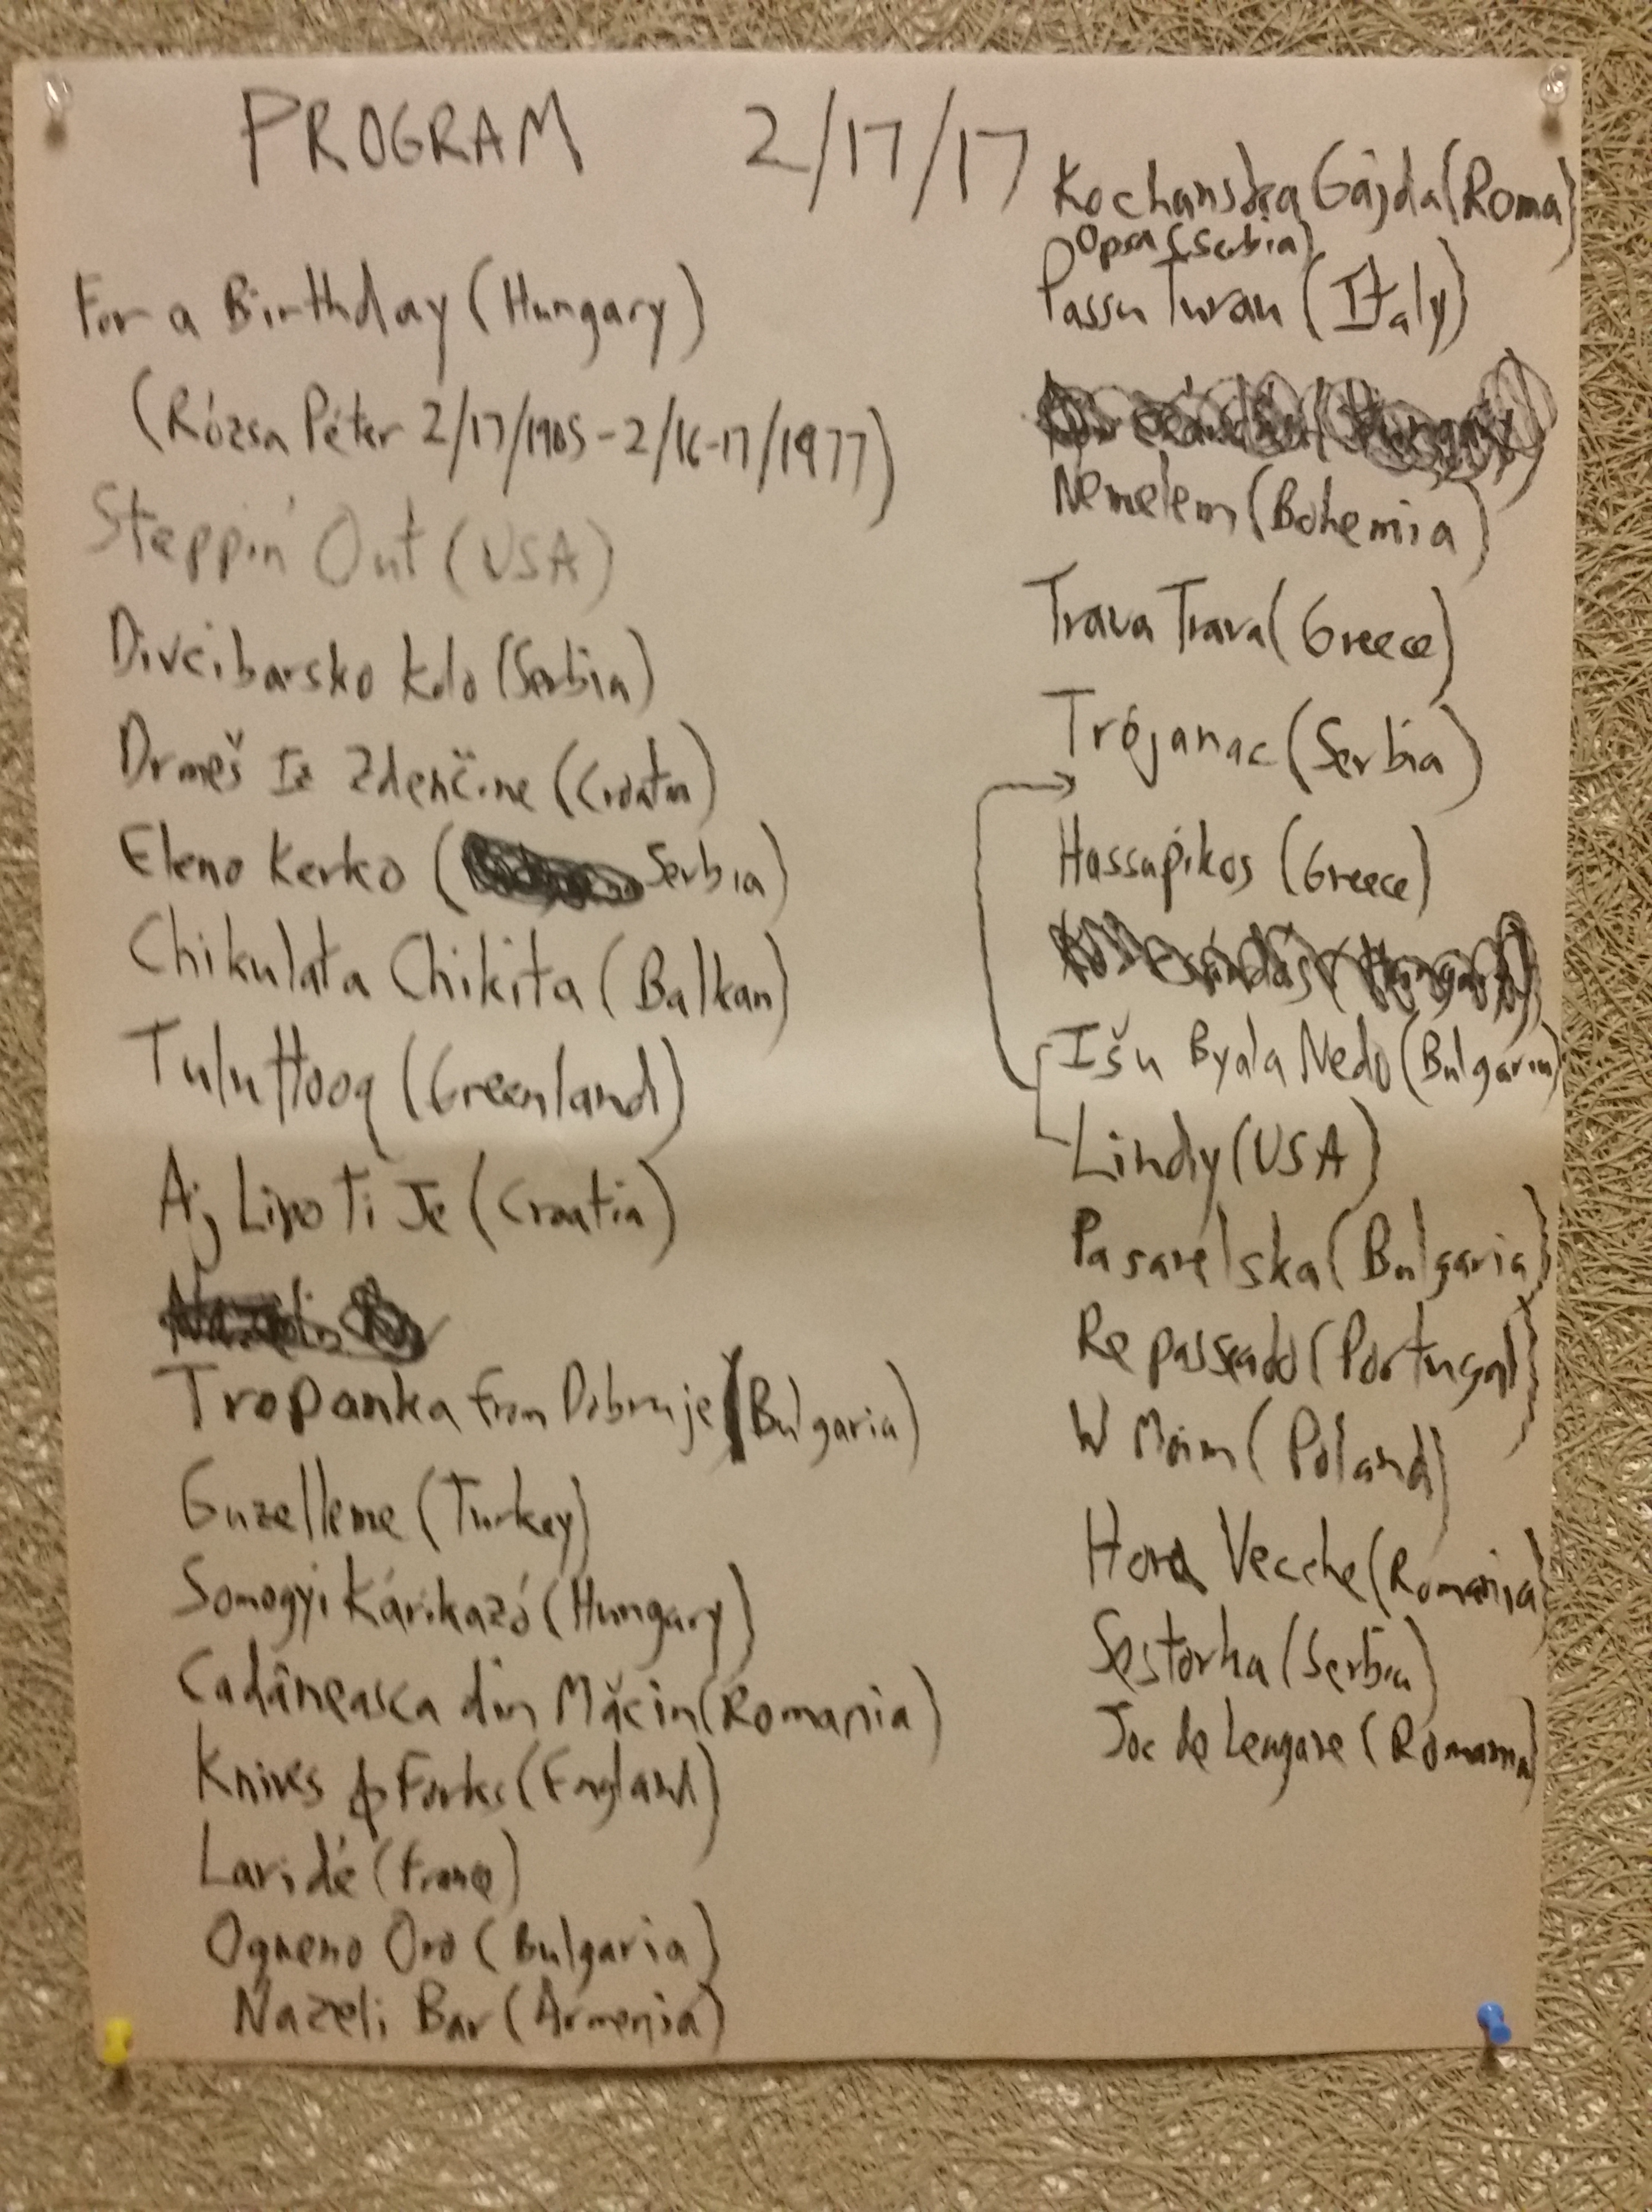 PROGRAM 2/17/17
For a Birthday (Hungary)
(Rózsa Péter 2/17/1905-2/16-17/1977)
Steppin' Out (USA)
Divcibarsko Kolo (Serbia)
Drmeš Iz Zdenčine (Croatia)
Eleno Kerko (Serbia)
Chikulata Chikita (Balkan)
TuluHooq (Greenland)
Aj Lipo Ti Je (Croatia)
Nazeli Bar
Tropanka from Dobruje (Bulgaria)
Guzelleme (Turkey)
Somogyi Kárikazó (Hungary)
Cadâneasca din Măcin (Romania)
Knives & Forks (England)
Laridé (France)
Ogneno Oro (Bulgaria)
Nazeli Bar (Armenia)
Kochanska Gajda (Roma)
Opsa (Serbia)
Passu Turau (Italy)
Nemelem (Bohemia)
Trava Trava (Greece)
Trojanac (Serbia)
Hassapikos (Greece)
Išu Byala Nedo (Bulgaria)
Lindy (USA)
Pasarelska (Bulgaria)
Repasseado (Portugal)
W Moim (Poland)
Hora Vecche (Romania)
Sestorka (Serbia)
Joc de Leagane (Romania)